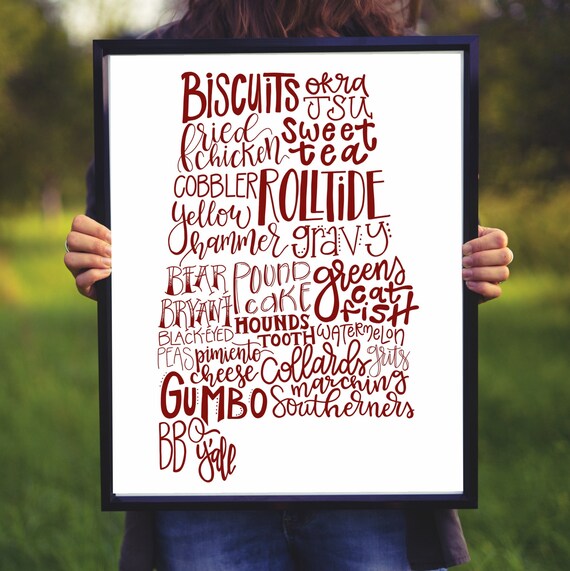 BISCUITS okra
JSU
fried sweet
chicken tea
COBBLER ROLLTIDE
yellow
hammer gravy
BEAR POUND greens
BRYANT CAKE cat
fish
BLACK-EYED HOUNDS
TOOTH WATERMELON
PEAS pimiento
cheese Collards grits
marching
GUMBO Southerners
BBQ y'all